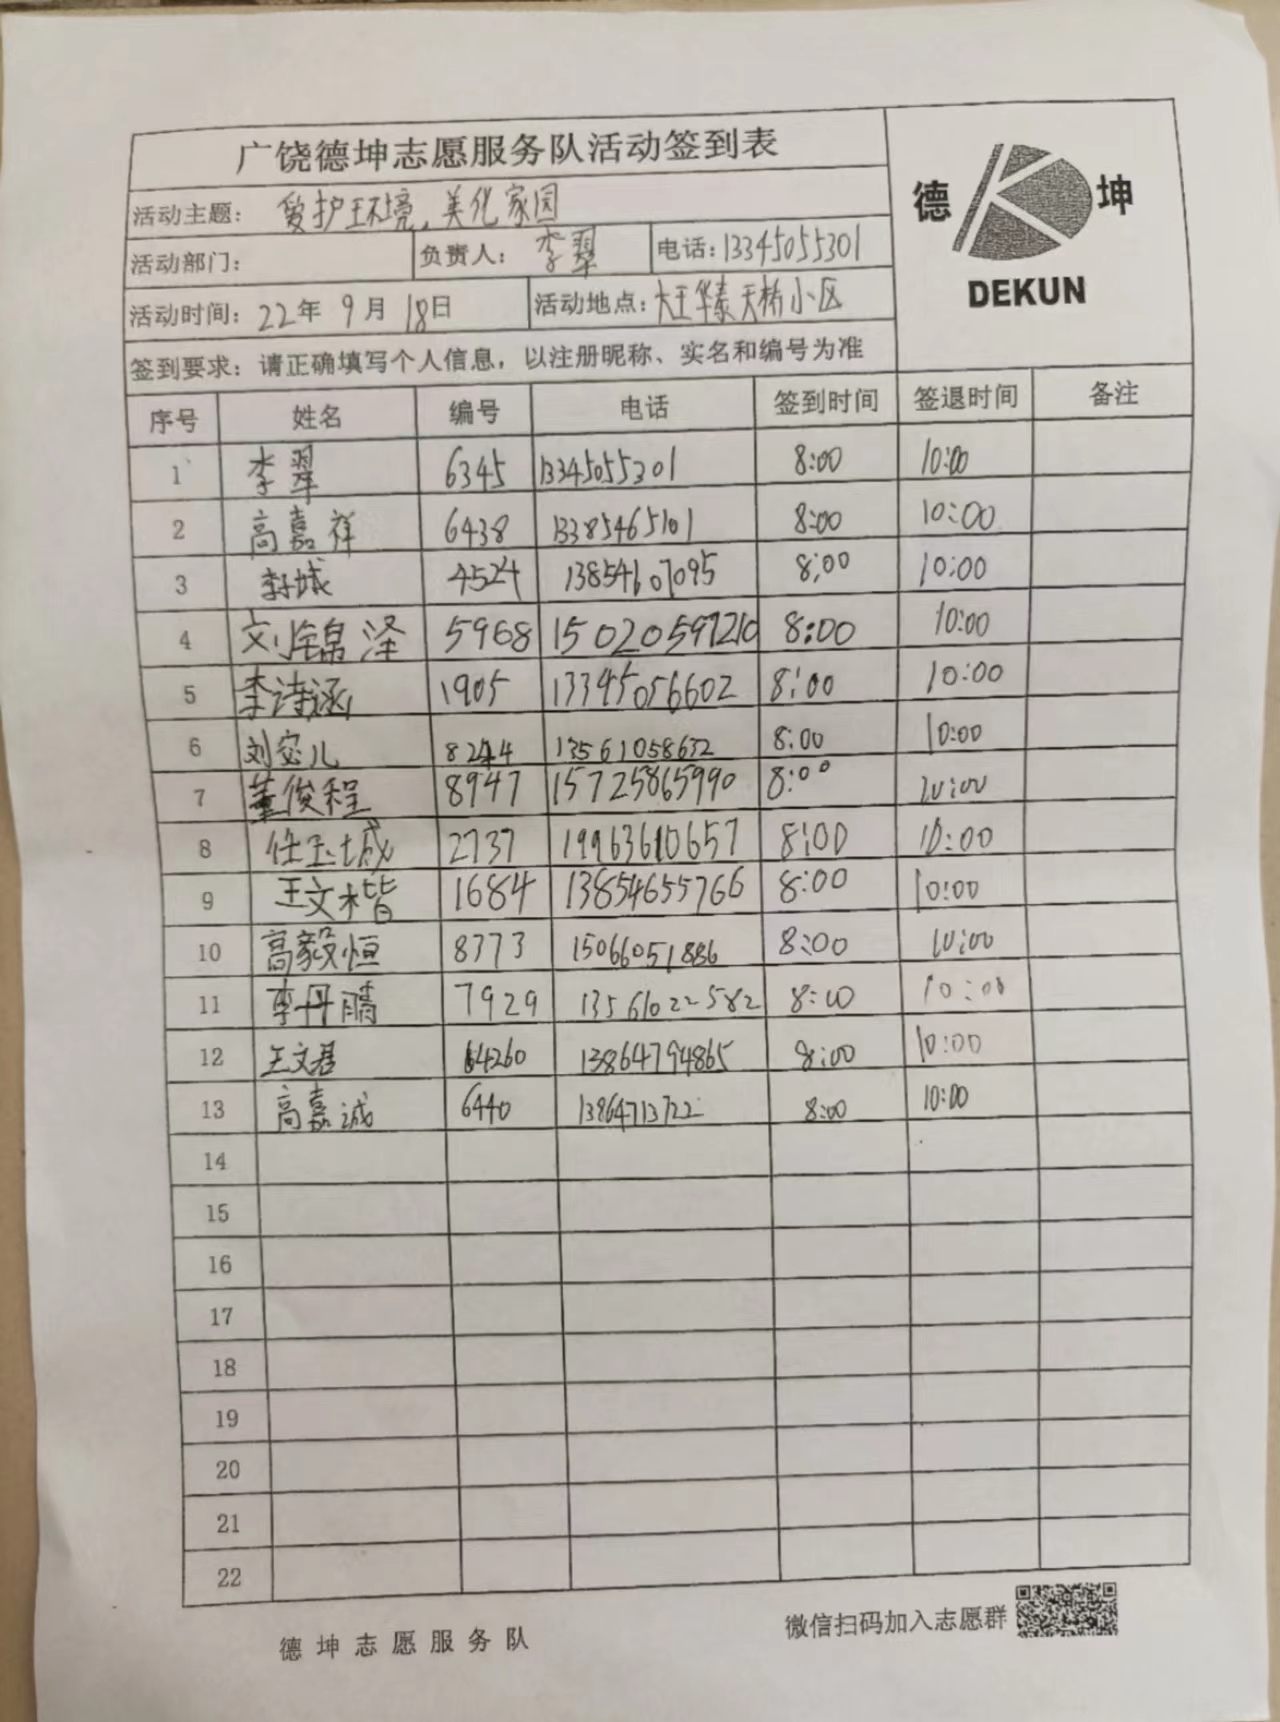 广饶德坤志愿服务队活动签到表
德 坤
DEKUN
活动主题: 爱护环境,美化家园
活动部门: 负责人: 李翠 电话:13345055301
活动时间: 22年 9月 18日 活动地点: 大王华泰天桥小区
签到要求: 请正确填写个人信息, 以注册昵称、实名和编号为准
序号 姓名 编号 电话 签到时间 签退时间 备注
1 李翠 6345 13345055301 8:00 10:00
2 高嘉祥 6438 13385465101 8:00 10:00
3 4524 13854607095 8:00 10:00
4 刘锦泽 5968 15020597210 8:00 10:00
5 李诗涵 1905 13345056602 8:00 10:00
6 8244 13561058632 8:00 10:00
7 董俊程 8947 15725865990 8:00 10:00
8 任玉城 2737 19963610657 8:00 10:00
9 王文楷 1684 13854655766 8:00 10:00
10 高毅恒 8373 15066051886 8:00 10:00
11 李丹晴 7929 13561022582 8:00 10:00
12 王文君 64260 13864794865 8:00 10:00
13 高嘉诚 6440 13864713722 8:00 10:00
14
15
16
17
18
19
20
21
22
德坤志愿服务队 微信扫码加入志愿群